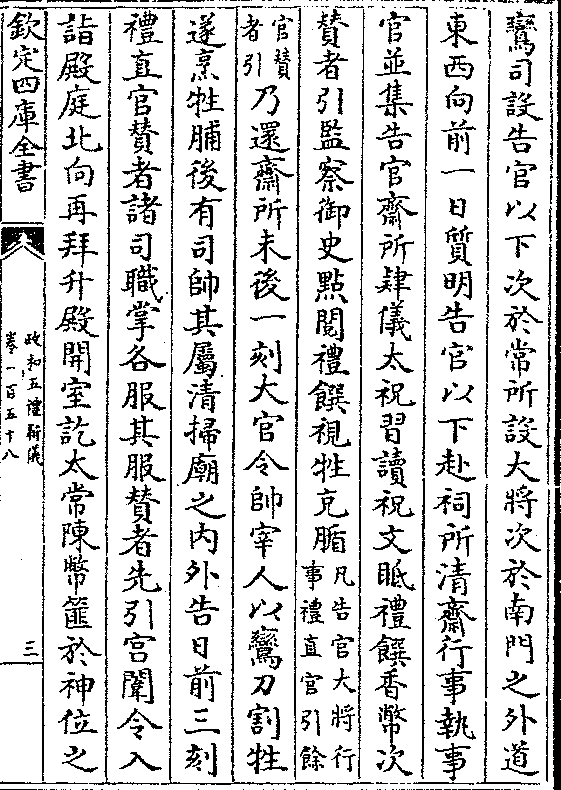 鸞司設告官以下次於常所設大將次於南門之外道
東西向前一日質明告官以下赴祠所清齋行事執事
官並集告官齋所肄儀太祝習讀祝文眡禮饌香幣次
贊者引監察御史點閱禮饌視牲充腯凡告官大將行
事禮直官引餘
官贊
者引乃還齋所未後一刻大官令帥宰人以鸞刀割牲
遂烹牲脯後有司帥其屬清掃廟之内外告日前三刻
禮直官贊者諸司職掌各服其服贊者先引宫闈令入
詣殿庭北向再拜升殿開室訖太常陳幣篚於神位之
欽定四庫全書
政和五禮新儀
卷一百五十八
三